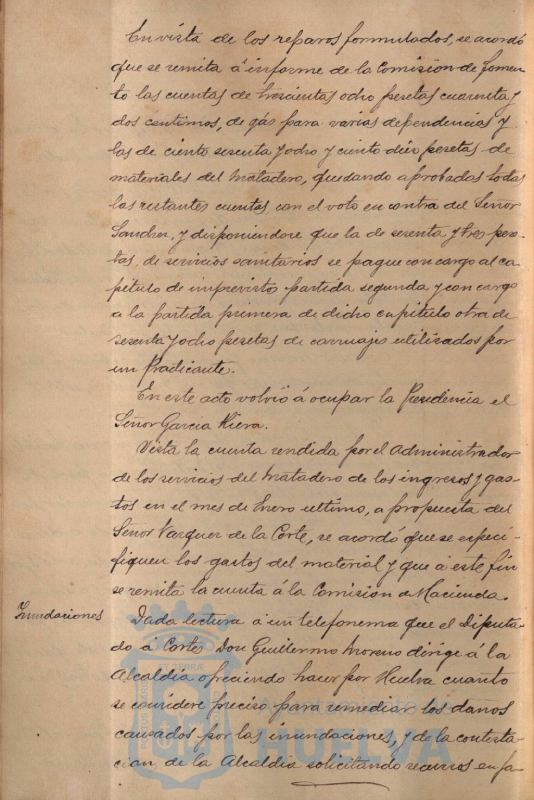 En vista de los reparos formulados, se acordó
que se remita á informe de la Comision de fomen-
to las cuentas de trescientas ocho pesetas cuarenta y
dos centimos, de gas para varias dependencias y
las de ciento sesenta y ocho y ciento diez pesetas de
materiales del Matadero, quedando aprobadas todas
las restantes cuentas con el voto en contra del Señor
Sanchez, y disponiendose que la de sesenta y tres pese-
tas, de servicios sanitarios se pague con cargo al ca-
pitulo de imprevisto partida segunda y con cargo
a la partida primera de dicho capitulo otra de
sesenta y ocho pesetas de carruajes utilizados por
un Practicante.
En este acto volvió á ocupar la Presidencia el
Señor Garcia Riera.
Vista la cuenta rendida por el Administrador
de los servicios del Matadero de los ingresos y gas-
tos en el mes de Enero ultimo, a propuesta del
Señor Vazquez de la Corte, se acordó que se especi-
fiquen los gastos del material y que á este fin
se remita la cuenta á la Comision de Hacienda.
Inundaciones
Dada lectura á un telefonema que el Diputa-
do á Cortes Don Guillermo Moreno dirige á la
Alcaldia ofreciendo hacer por Huelva cuanto
se considere preciso para remediar los daños
causados por las inundaciones, y de la contesta-
cion de la Alcaldia solicitando recursos en fa-
HUELVA